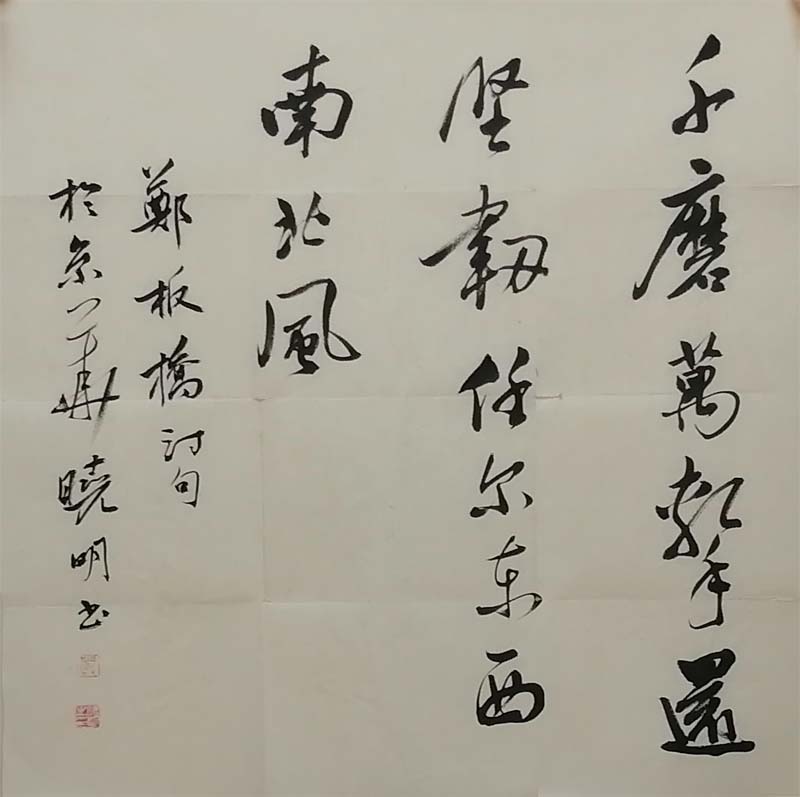 千磨萬擊還
坚韌任尔东西
南北風
鄭板橋诗句
於京華曉明书